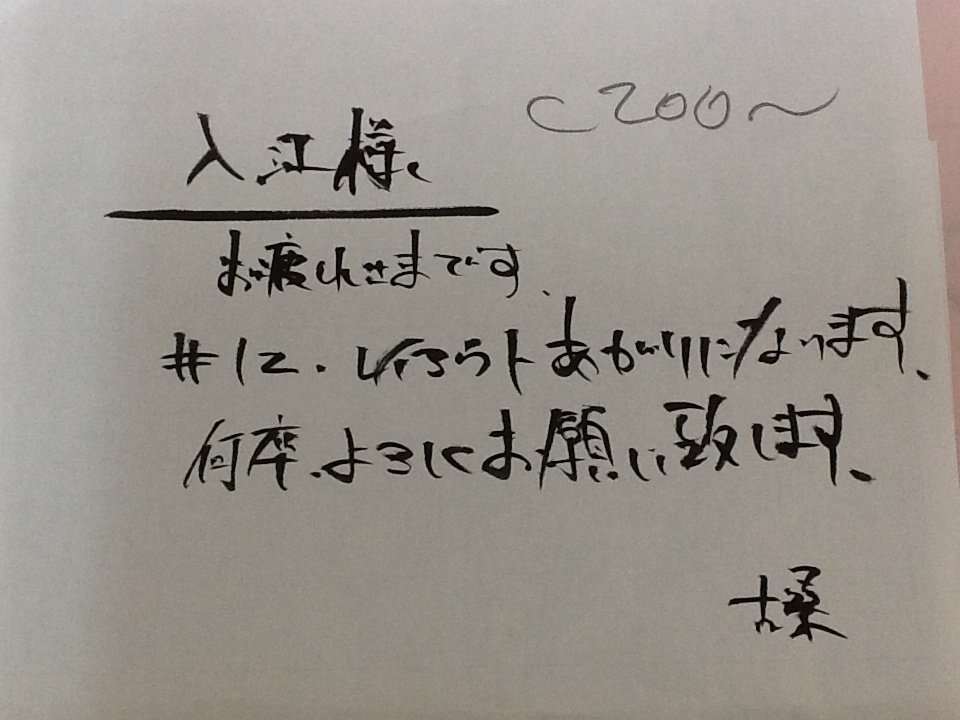 C200〜
入江様、
お疲れさまです、
#12.レイアウトあがりになります、
何卒、よろしくお願い致します、
古桑